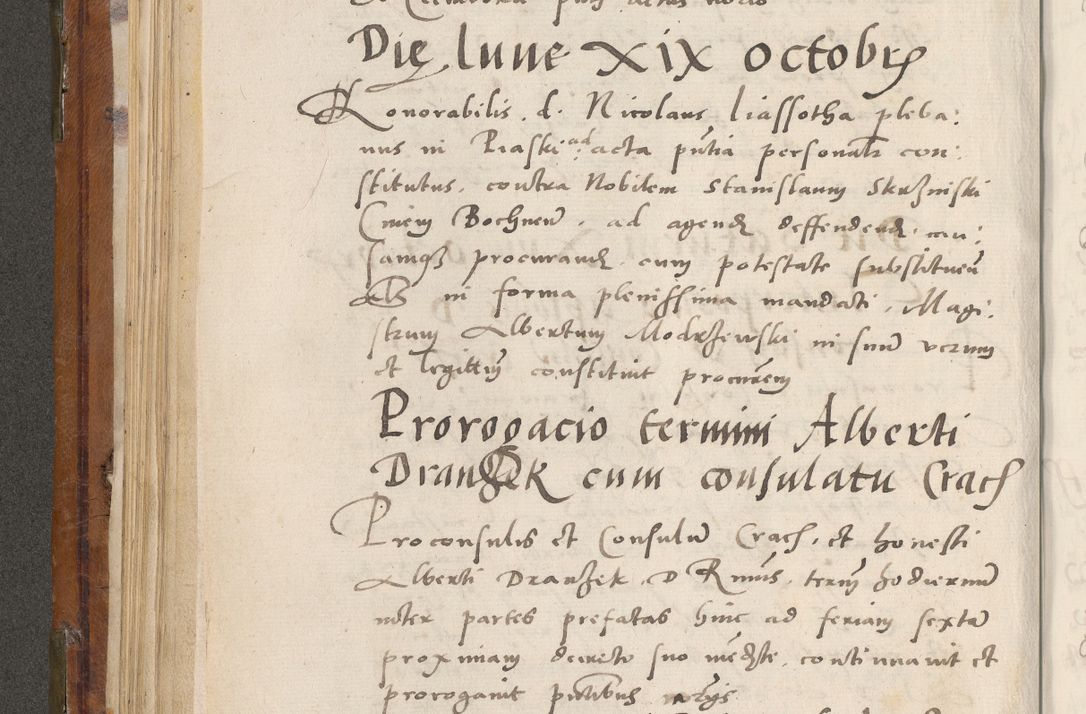 Die lune XIX octobris
Honorabilis d. Nicolaus Liassotha pleba:
nus in Piaski ad acta pñtia personalr con:
stitutus, contra Nobilem Stanislaum Skrzniski
Civem Bochneñ, ad agend deffendend cau:
samqз procurand cum potestate substitueñ
in forma plenissima mandati, Magi:
strum Albertum Modrzewski in suũ verum
et legittiм constituit procurem
Prorogacio termini Alberti
Dranzek cum consulatu Crach
Proconsulis et Consulũ Crach, et honesti
Alberti Dranzek D Rmus, termĩ hodiernũ
inter partes prefatas hinc ad feriam sextã
proximam decreto suo medjste, continuavit et
prorogavit pñtibus